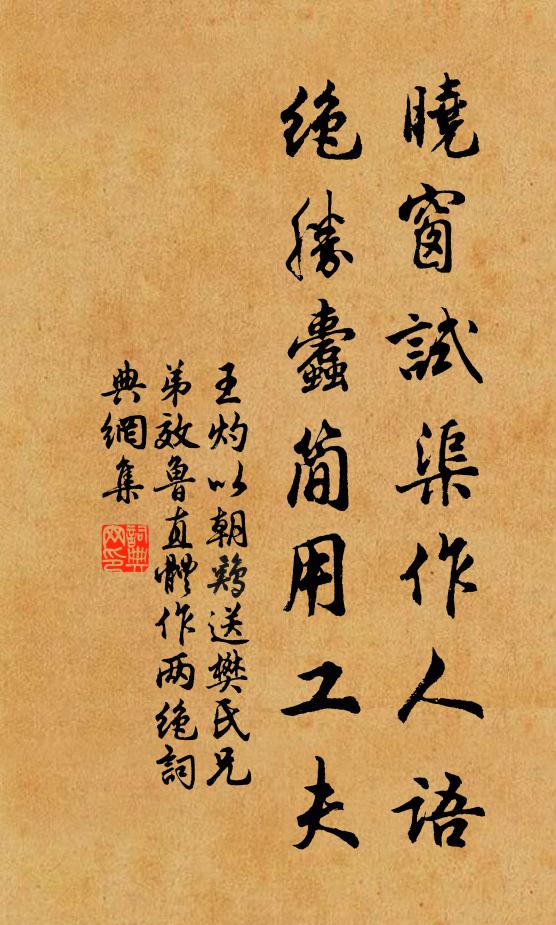 曉窗試渠作人語
绝勝蠹简用工夫
王灼以朝鷄送樊氏兄
弟效魯直體作两绝詞
典網集
詞典
网印